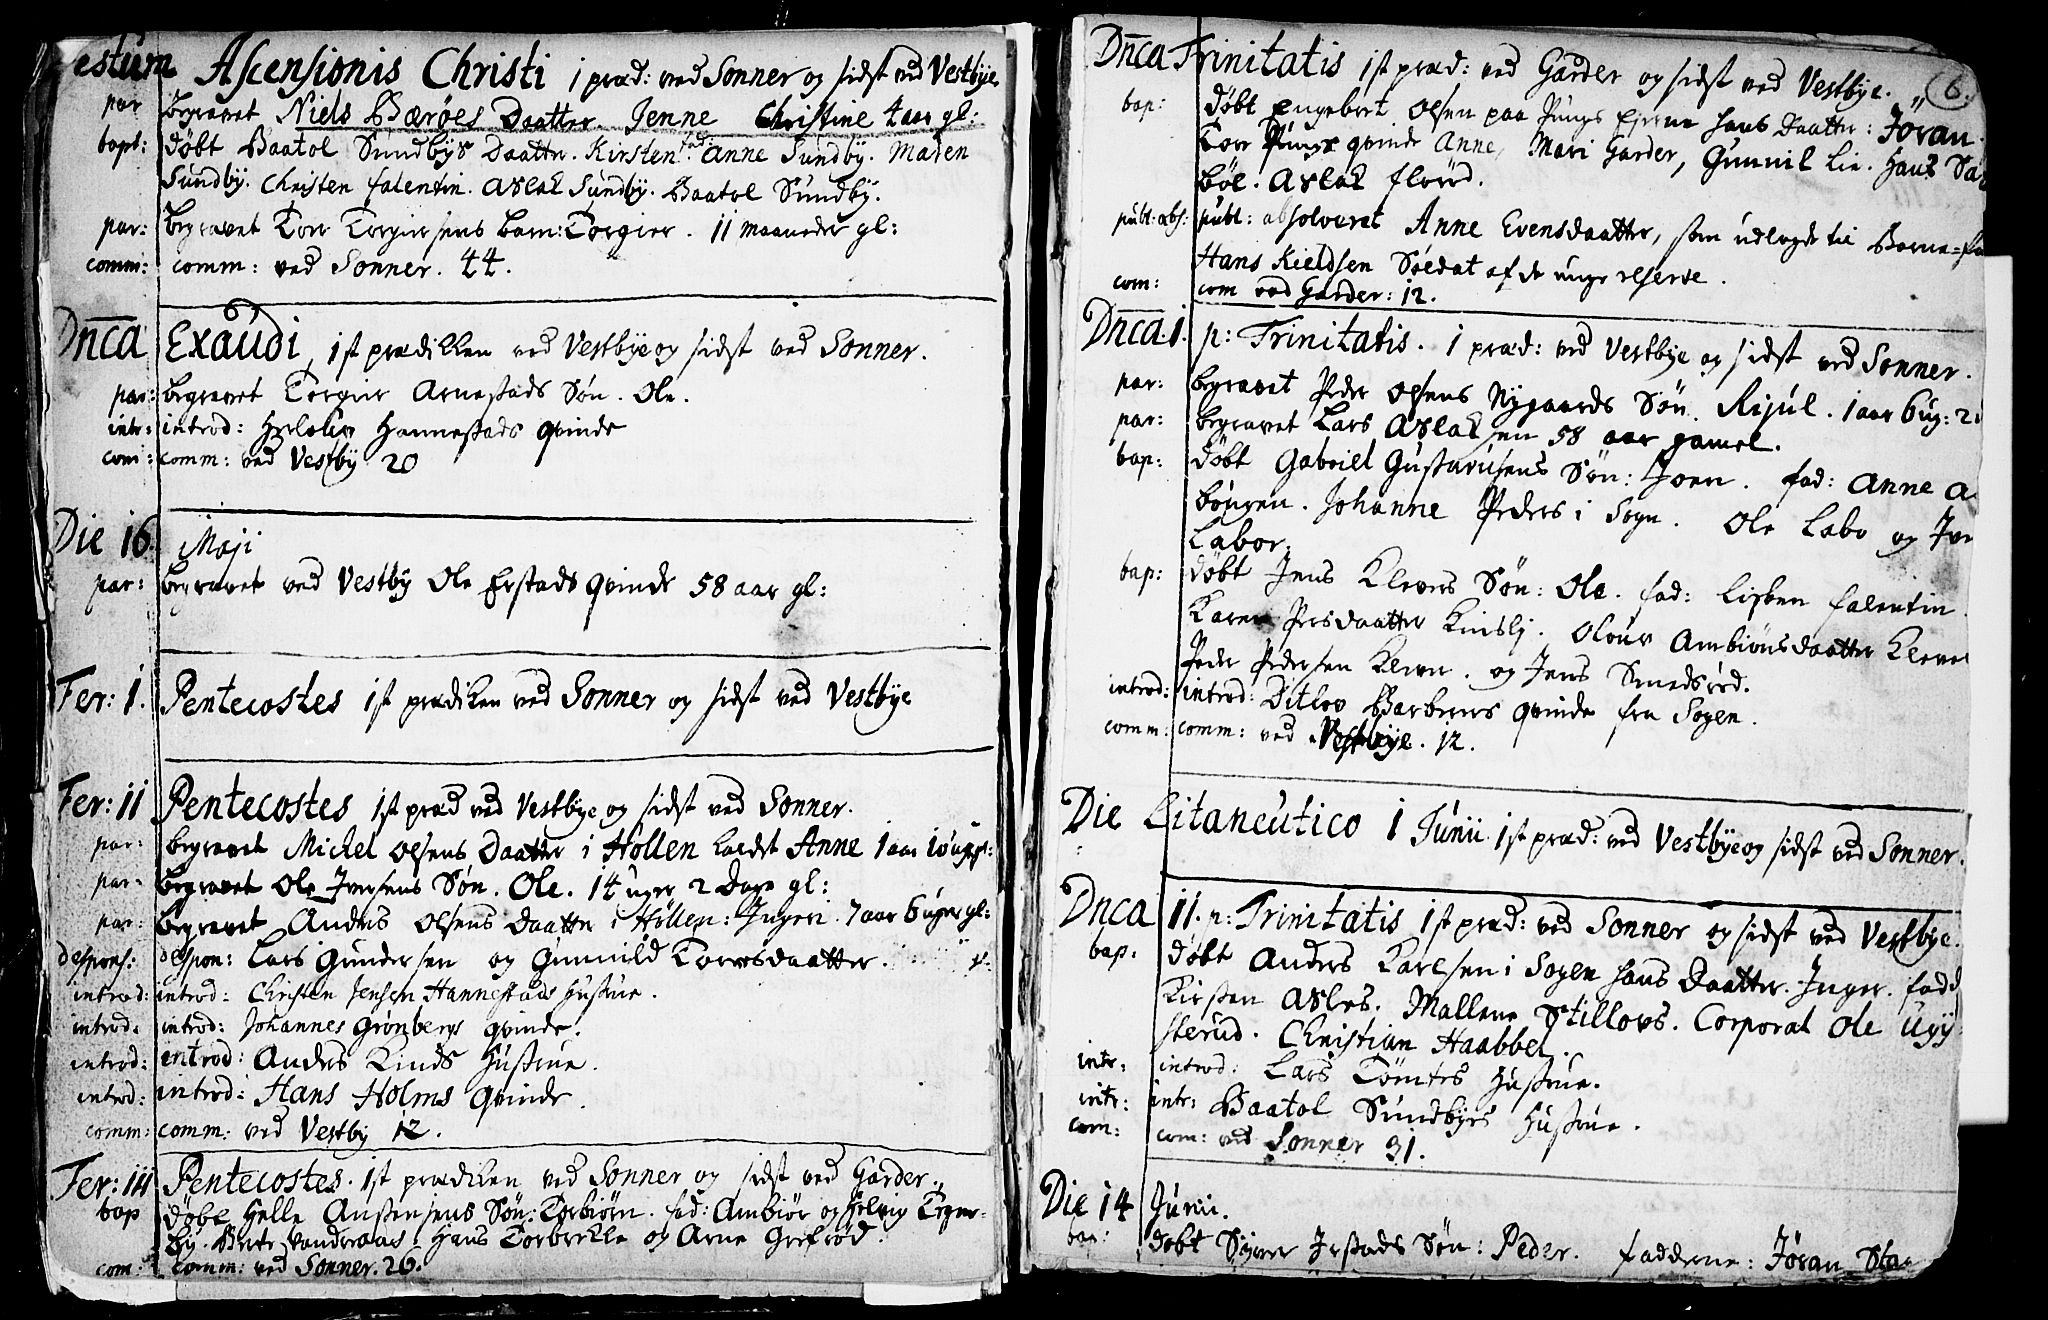 estum Ascensionis Christi 1 præd: ved Sonner og sidst ved Vestbye
par begravet Niels Bærøes Daatter Jenne Christine 4 aar gl:
bapt: døbt Baatol Sundbys Daatter. Kirsten. fad: Anne Sundby. Maden
Sundby. Christen falentin. Aslak Sundby. Baatol Sundby.
par: begravet Torr Torgiersens barn: Torgier. 11 maaneder gl:
comm: comm: ved Sonner. 44.
Dnca Exaudi, 1st prædikken ved Vestbye og sidst ved Sonner.
par: begravet Torgier Arnestads Søn. Ole.
intr: introd: Hannestads qvinde
com: comm: ved Vestby 20
Die 16 Maji
par: begravet ved Vestby Ole Erstads qvinde 58 aar gl:
Fer: 1. Pentecostes 1st prædiken ved Sonner og sidst ved Vestbye
Fer: 11 Pentecostes 1st præd ved Vestbye og sidst ved Sonner.
par: begravet Michel Olsens Daatter i Hòllen kaldet Anne 1 aar 10 uger:
par: begravet Ole Iversens Søn. Ole. 14 uger 2 Dage gl:
par: begravet Anders Olsens Daatter i Hòllen: Ingeri. 7 aar 6 uger gl:
despons: despon: Lars Gundersen og Gunnild Torersdaatter.
introd: introd: Christen Jensen Hannestads Hustrue.
introd: introd: Johannes Grønbergs qvinde.
introd: introd: Anders Kinds Hustrue.
introd: introd: Hans Holms qvinde.
comm: comm: ved Vestby 12.
Fer: 111 Pentecostes. 1st prædiken ved Sonner og sidst ved Garder.
bap døbt Helle Austensens Søn: Torbiørn. fad: Ambiør og Helvig Tegner-
by. Berte Vandraas. Hans Torbrekke og Arne Grefrød.
com: comm: ved Sonner. 26.
Dnca Trinitatis 1st præd: ved Garder og sidst ved Vestbye. 6.
bap: døbt Engebret Olsen paa Pungs Ejerne hans Daatter: Jòran.
Torr Pungs qvinde Anne, Mari Garder, Gunnil Lie. Hans Sa
bøl. Aslak flørød.
publ: abs: publ: absolveret Anne Evensdaatter, som udlagde til Barne-fa
Hans Kieldsen Soldat af de unge reserve.
com: com ved Garder: 12.
Dnca 1. p: Trinitatis. 1 præd: ved Vestbye og sidst ved Sonner.
par: begravet Peder Olsens Nygaards Søn. Rijul. 1 aar 6 ug: 2
par: begravet Lars Aslaksen 58 aar gamel.
bap: døbt Gabriel Gustavusens Søn: Joen. fad: Anne A
bøngen. Johanne Peders i Sogn. Ole Labo og Ive
Labor.
bap: døbt Jens Klevers Søn: Ole. fad: Lisken falentin.
Karen Persdaatter Kinsly. Olour Ambiønsdaatter Kleve
Peder Pedersen Kleven. og Jens Smedsrød.
introd: introd: Ditlov Barberers qvinde fra Sogen.
comm: comm: ved Vestbye. 12.
Die Litaneutico 1 Junii 1st præd: ved Vestbye og sidst ved Sonner.
Dnca 11. p: Trinitatis 1st præd: ved Sonner og sidst ved Vestbye.
bap: døbt Anders Karlsen i Sogen hans Daatter. Inger. fadd
Kirsten Asles. Mallene Stillovs. Corporal Ole Ugg
sterud. Christian Haabbel.
intr: introd: Lars Tòmtes Hustrue.
intr: intr: Baatol Sundbyes Hustrue.
com: com: ved Sonner 31.
Die 14 Junii.
bap: døbt Siver Irstads Søn: Peder. fadderne: Jòran Sta